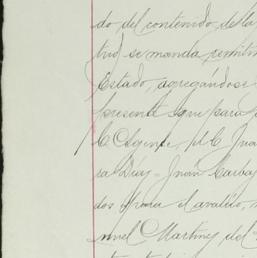 do del contenido de la
trid se manda remitir
Estado, agregándose
presente que para
C. Agente, el C. Jua
ra Díaz - Juan Carbaj
dos para el avalúo,
nuel Martinez del